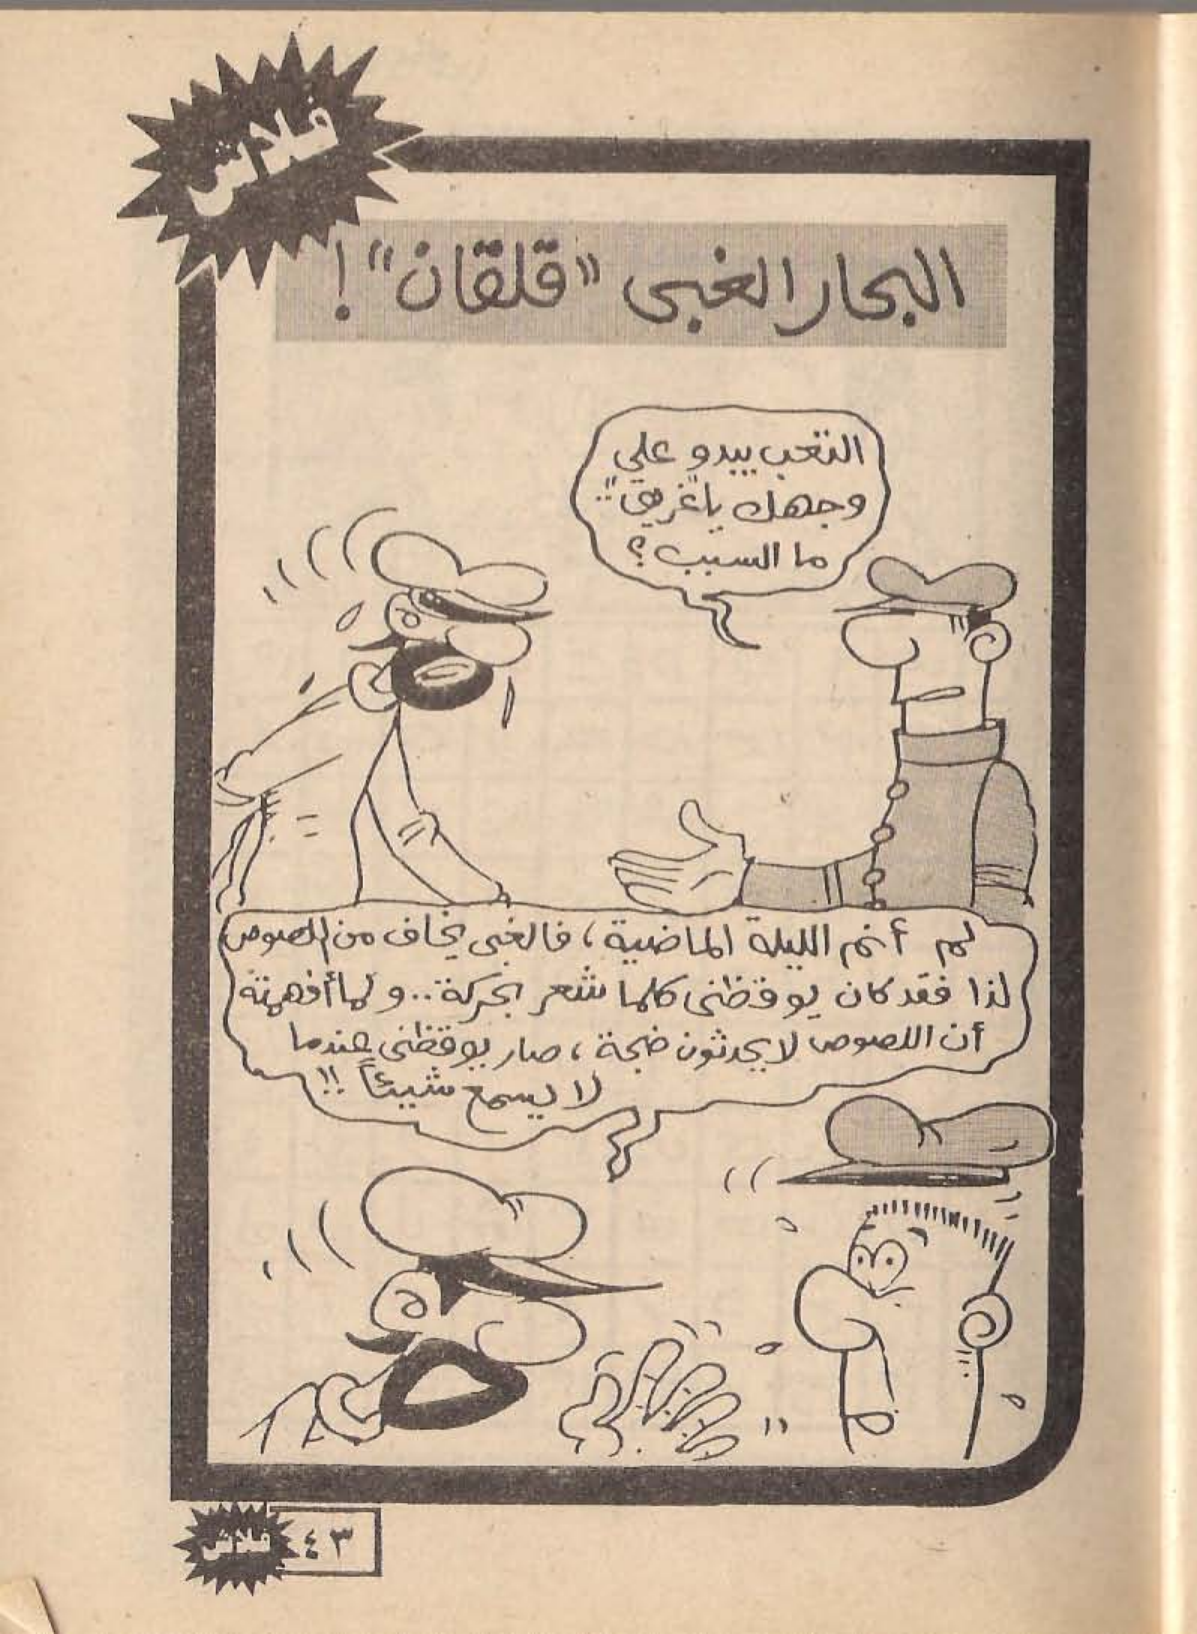 فلاش
البحار الغبى "قلقان" !
التعب يبدو على
وجهك يا "غريق"..
ما السبب ؟
لم أنم الليلة الماضية ، فالغبى يخاف من اللصوص
لذا فقد كان يوقظنى كلما شعر بحركة .. و لما أفهمته
أن اللصوص لا يحدثون ضجة ، صار يوقظنى عندما
لا يسمع شيئاً !!
فلاش ٤٣